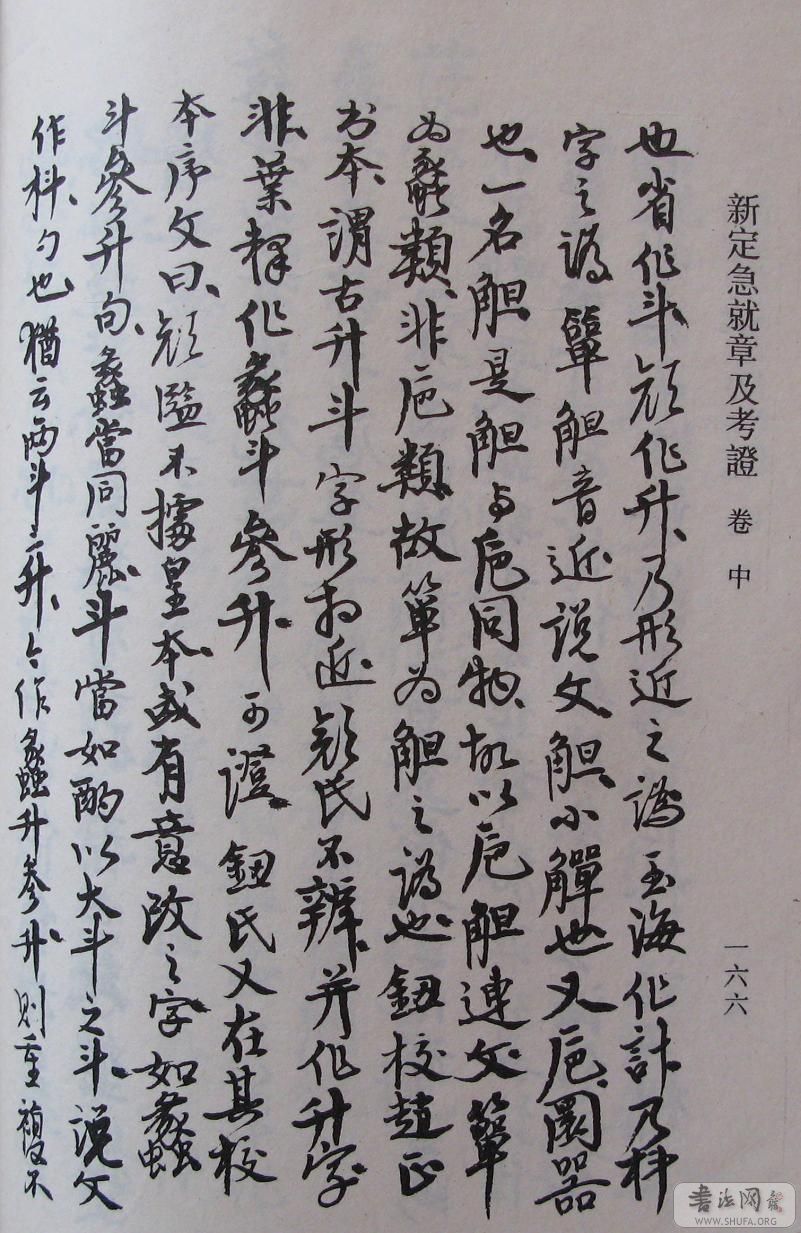 新定急就章及考證 卷中
一六六
也省作斗顔作升乃形近之譌玉海作計乃枓
字之譌簞觛音近説文觛小觶也又巵圜器
也一名觛是觛与巵同物故以巵觛連文簞
为蠡類非巵類故箪为觛之譌也鈕校趙正
书本謂古升斗字形相近顔氏不辨并作升字
非葉釋作蠡斗參升可證鈕氏又在其校
本序文曰顔監不據皇本或有意改之字如蠡
斗參升句蠡當同麗斗當如酌以大斗之斗説文
作枓勺也猶云两斗三升今作蠡升參升則重複不
書法网
WWW.SHUFA.ORG